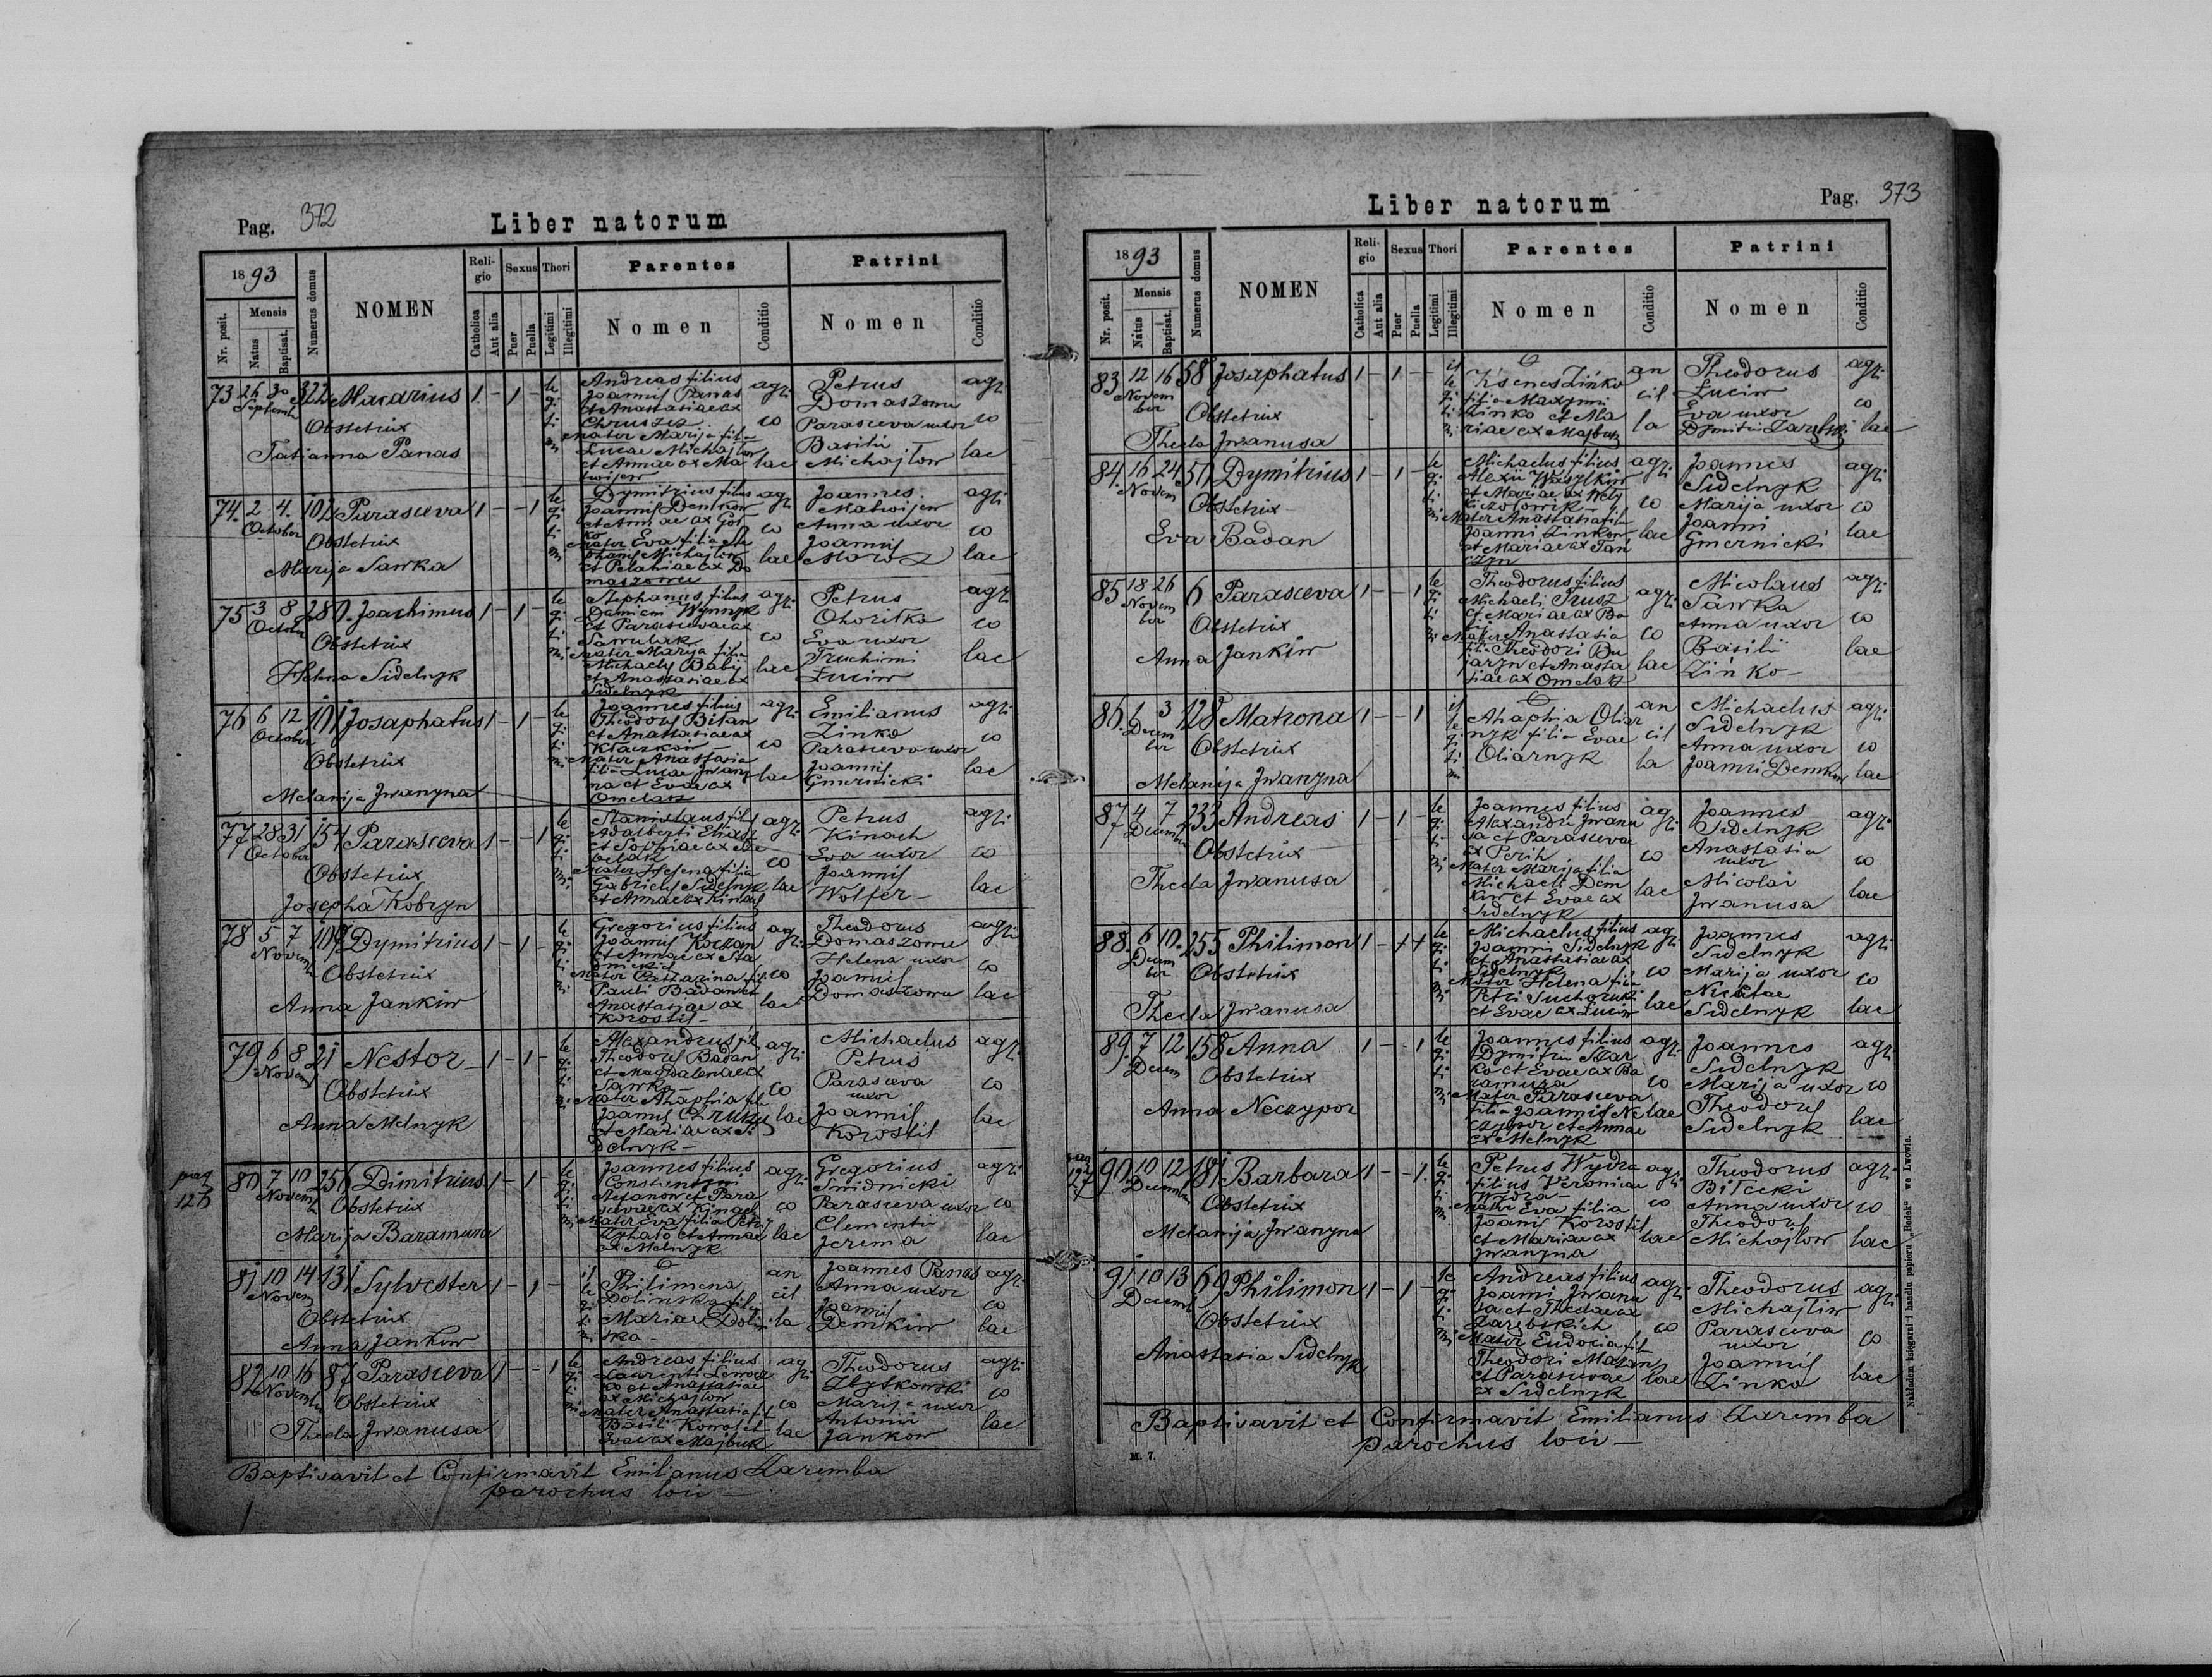 Pag. 372
Liber natorum
1893
Mensis
Nr. posit.
Natus
Baptisat.
Numerus domus
NOMEN
Religio
Catholica
Aut alia
Sexus
Puer
Puella
Thori
Legitimi
Illegitimi
Parentes
Nomen
Conditio
Patrini
Nomen
Conditio
73 26 30 322 Macarius 1 - 1 -
Septemb
Obstetrix
Tatianna Panas
legitimi
Andreas filius
Joannis Panas
et Anastasiae ex
Chruszcz
Mater Marija filia
Lucae Michajlow
et Annae ex Ma
twijew
agricolae
Petrus
Domaszowu
Parasceva uxor
Basilii
Michajlow
agricolae
74. 2 4. 102 Parasceva 1 - - 1
October
Obstetrix
Marija Sawka
legitimi
Dymitrius filius
Joannis Demkow
et Annae ex
Mater Eva filia
Michajlow
et Pelahiae ex Do
maszowu
agricolae
Joannes
Matwijew
Anna uxor
Joannis
Moroz
agricolae
75 3 8 280. Joachimus 1 - 1 -
Octob
Obstetrix
Helena Sidelnyk
legitimi
Stephanus filius
Damiani Wynnyk
et Parascevae ex
Sawulak
Mater Marija filia
Michaelis Babij
et Anastasiae ex
Sidelnyk
agricolae
Petrus
Ohoritko
Eva uxor
Truchimi
Luciw
agricolae
76 6 12 101 Josaphatus 1 - 1 -
October
Obstetrix
Melanija Jwanyna
legitimi
Joannes filius
Theodori Bilan
et Anastasiae ex
Klaczkow
Mater Anastasia
filia Lucae Jwany
na et Evae ex
Omelasz
agricolae
Emilianus
Zinko
Parasceva uxor
Joannis
Gmernicki
agricolae
77 28 31 154 Parasceva 1 - - 1
October
Obstetrix
Josepha Kobryn
legitimi
Stanislaus fil
Adalberti Eliasz
et Sophiae ex
Mater Helena filia
Gabrielis Sidelnyk
et Annae ex Kinach
agricolae
Petrus
Kinach
Eva uxor
Joannis
Wolfer
agricolae
78 5 7 109 Dymitrius 1 - 1 -
Novemb
Obstetrix
Anna Jankiw
legitimi
Gregorius filius
Joannis Koczan
et Annae ex Sta
Mater Catharina fil
Pauli Badan et
Anastasiae ex
Korostil
agricolae
Theodorus
Domaszowu
Helena uxor
Joannis
Domaszowu
agricolae
79 6 8 21 Nestor 1 - 1 -
Novemb
Obstetrix
Anna Melnyk
legitimi
Alexandrus fil
Theodori Badan
et Magdalenae ex
Sawka
Mater Ahaphia fil
Joannis Chruszcz
et Mariae ex Si
delnyk
agricolae
Michaelus
Petrus
Parasceva
uxor
Joannis
Korostil
agricolae
pag
126
80 7 10 256 Dimitrius 1 - 1 -
Novemb
Obstetrix
Marija Baramura
legitimi
Joannes filius
Constantini
Stefanow et Para
scevae ex Kinach
Mater Eva filia Petri
et Annae
ex Melnyk
agricolae
Gregorius
Smidnicki
Parasceva uxor
Clementii
Jerema
agricolae
81 10 14 131 Sylvester 1 - 1 -
Novem
Obstetrix
Anna Jankiw
illegitimi
Philimena
Dolinska filia
Mariae Dolin
ska
ancilla
Joannes Panas
Anna uxor
Joannis
Demkiw
agricolae
82 10 16 87 Parasceva 1 - - 1
Novemb
Obstetrix
Thecla Jwanusa
legitimi
Andreas filius
Laurentii
et Anastasiae
ex Michajlow
Mater Anastasia fil
Basilii Kowal et
Evae ex Majbuk
agricolae
Theodorus
Zbytkowski
Marija uxor
Antonii
Jankow
agricolae
Baptisavit et Confirmavit Emilianus Zaremba
parochus loci
Liber natorum
Pag. 373
1893
Mensis
Nr. posit.
Natus
Baptisat.
Numerus domus
NOMEN
Religio
Catholica
Aut alia
Sexus
Puer
Puella
Thori
Legitimi
Illegitimi
Parentes
Nomen
Conditio
Patrini
Nomen
Conditio
83 12 16 58 Josaphatus 1 - 1 -
November
Obstetrix
Thecla Jwanusa
illegitimi
Ksenes Zinko
filia Maxymi
Zinko et Ma
riae ex Majbuk
ancilla
Theodorus
Luciw
Eva uxor
Dymitrii Zarebski
agricolae
84. 16 24 51 Dymitrius 1 - 1 -
Novem
Obstetrix
Eva Badan
legitimi
Michaelus filius
Alexii Wasylkiw
et Mariae ex Wely
Mater Anastasia filia
Joanni Zinkow
et Mariae ex Tan
czyn
agricolae
Joannes
Sidelnyk
Marija uxor
Joanni
Gmernicki
agricolae
85 18 26 6 Parasceva 1 - - 1
November
Obstetrix
Anna Jankiw
legitimi
Theodorus filius
Michaeli Trusz
et Mariae ex Ba
bij
Mater Anastasia
filia Theodori Bu
jaryn et Anasta
siae ex Omelasz
agricolae
Nicolaus
Sawka
Anna uxor
Basilii
Zinko
agricolae
86. 1 3 128 Matrona 1 - - 1
December
Obstetrix
Melanija Jwanyna
illegitimi
Ahaphia Oliar
nyk filia Evae
Oliarnyk
ancilla
Michaelus
Sidelnyk
Anna uxor
Joanni Demkiw
agricolae
87 4 7 233 Andreas 1 - 1 -
Decemb
Obstetrix
Thecla Jwanusa
legitimi
Joannes filius
Alexandri Jwanu
sa et Parasceva
ex Perih
Mater Marija filia
Michaeli Dem
kiw et Evae ex
Sidelnyk
agricolae
Joannes
Sidelnyk
Anastasia
uxor
Nicolai
Jwanusa
agricolae
88. 6 10. 255 Philimon 1
December
Obstetrix
Thecla Jwanusa
legitimi
Michaelus filius
Joanni Sidelnyk
et Anastasiae ex
Sidelnyk
Mater Helena filia
Petri Suchorski
et Evae ex Luciw
agricolae
Joannes
Sidelnyk
Marija uxor
Nicetae
Sidelnyk
agricolae
89. 7 12 158 Anna 1 - - 1
Decem
Obstetrix
Anna Neczypor
legitimi
Joannes filius
Dymitrii Skar
ko et Evae ex Ba
ramura
Mater Parasceva
filia Joannis Ne
czypor et Annae
ex Melnyk
agricolae
Joannes
Sidelnyk
Marija uxor
Theodori
Sidelnyk
agricolae
pag
127
90. 10 12 181 Barbara 1 - - 1.
Decembr
Obstetrix
Melanija Jwanyna
legitimi
Petrus Wydra
filius Veronicae
Wydra
Mater Eva filia
Joanni Korostil
et Mariae ex
Jwanyna
agricolae
Theodorus
Bilecki
Anna uxor
Theodori
Michajlow
agricolae
91 10 13 69 Philimon 1 - 1 -
Decemb
Obstetrix
Anastasia Sidelnyk
legitimi
Andreas filius
Joanni Jwanu
sa et Theclae ex
Zarebskich
Mater Eudocia fil
Theodori Mazan
et Parascevae
ex Sidelnyk
agricolae
Theodorus
Michajliw
Parasceva
uxor
Joannis
Zinko
agricolae
Baptisavit et Confirmavit Emilianus Zaremba
parochus loci
M. 7.
Nakładem księgarni i handlu papieru „Bodek” we Lwowie.